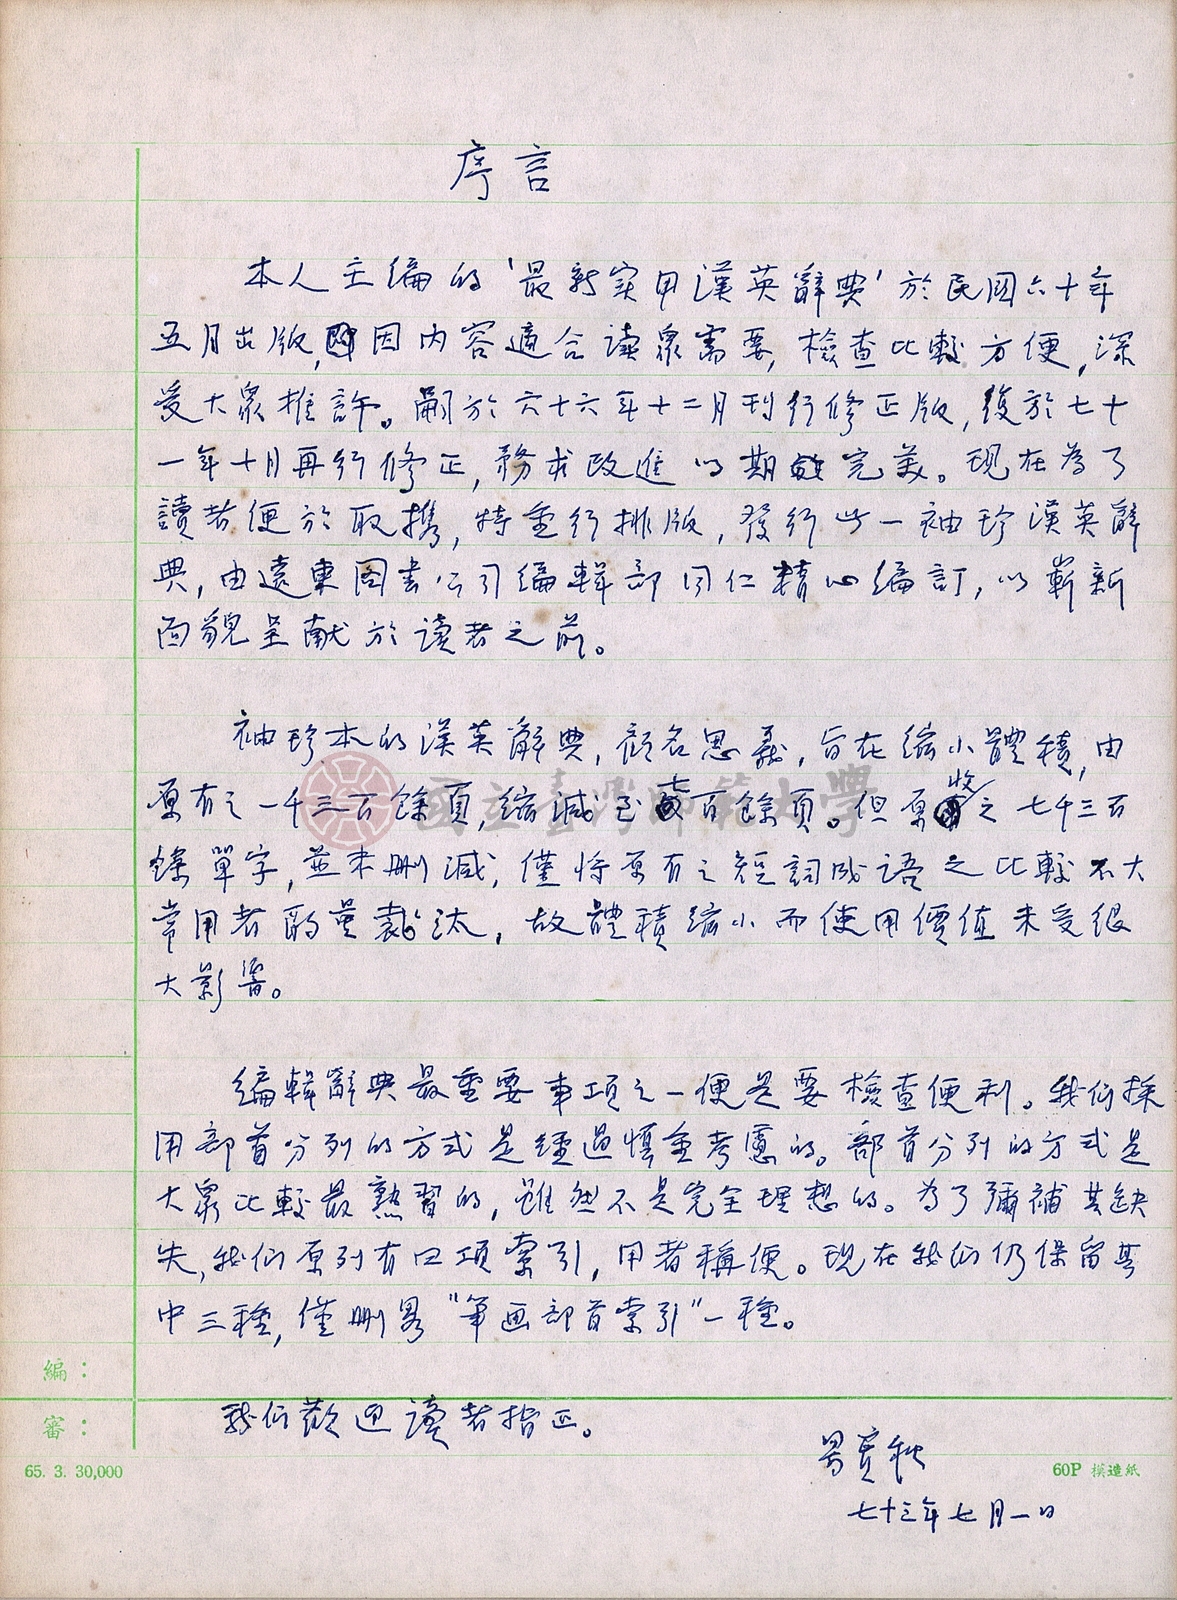 序言
本人主編的'最新实用漢英辭典'於民國六十年
五月出版,因内容適合读眾需要,檢查比較方便,深
受大眾推許。嗣於六十六年十二月刊行修正版,復於七十
一年十月再行修正,務求改進以期完美。現在為了
讀者便於取携,特重行排版,發行此一袖珍漢英辭
典,由遠東图書公司編輯部同仁精心編訂,以嶄新
面貌呈献於读者之前。
袖珍本的漢英辭典,顾名思義,旨在縮小體積,由
原有之一千三百餘頁,縮減至七百餘頁。但原收之七千三百
餘單字,並未刪減,僅將原有之短詞成语之比較不大
常用者酌量裁汰,故體積縮小而使用價值未受很
大影響。
編輯辭典最重要事項之一便是要檢查便利。我们採
用部首分列的方式是经過慎重考慮的。部首分列的方式是
大眾比較最熟習的,雖然不是完全理想的。為了彌補其缺
失,我们原列有四項索引,用者稱便。現在我们仍保留其
中三種,僅刪畧"筆画部首索引"一種。
我们歡迎读者指正。
梁實秋
七十三年七月一日
編:
審:
65. 3. 30,000
60P 模造紙
國立臺灣師範大學